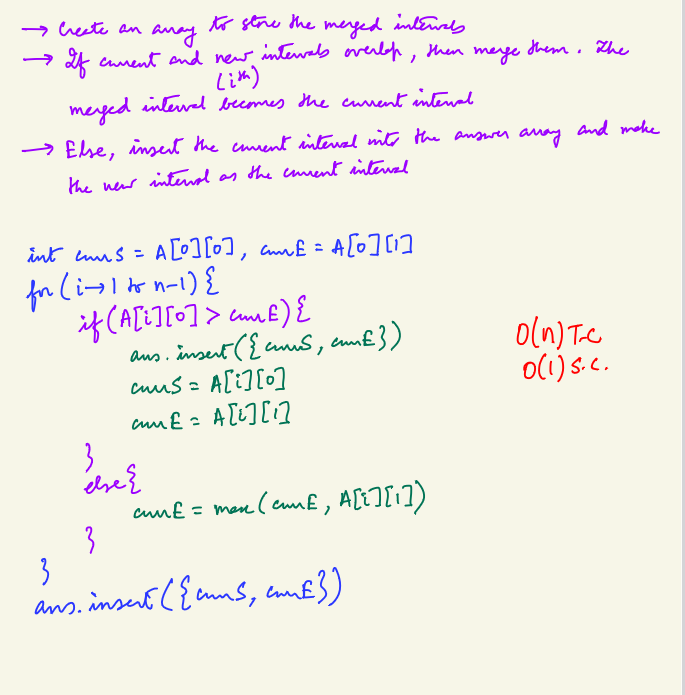 → Create an array to store the merged intervals
→ If current and new intervals overlap, then merge them. The
(ith)
merged interval becomes the current interval
→ Else, insert the current interval into the answer array and make
the new interval as the current interval
int currS = A[0][0], currE = A[0][1]
for (i→1 to n-1) {
if (A[i][0] > currE) {
ans.insert({currS, currE})
currS = A[i][0]
currE = A[i][1]
}
else {
currE = max(currE, A[i][1])
}
}
ans.insert({currS, currE})
O(n) T.C
O(1) S.C.